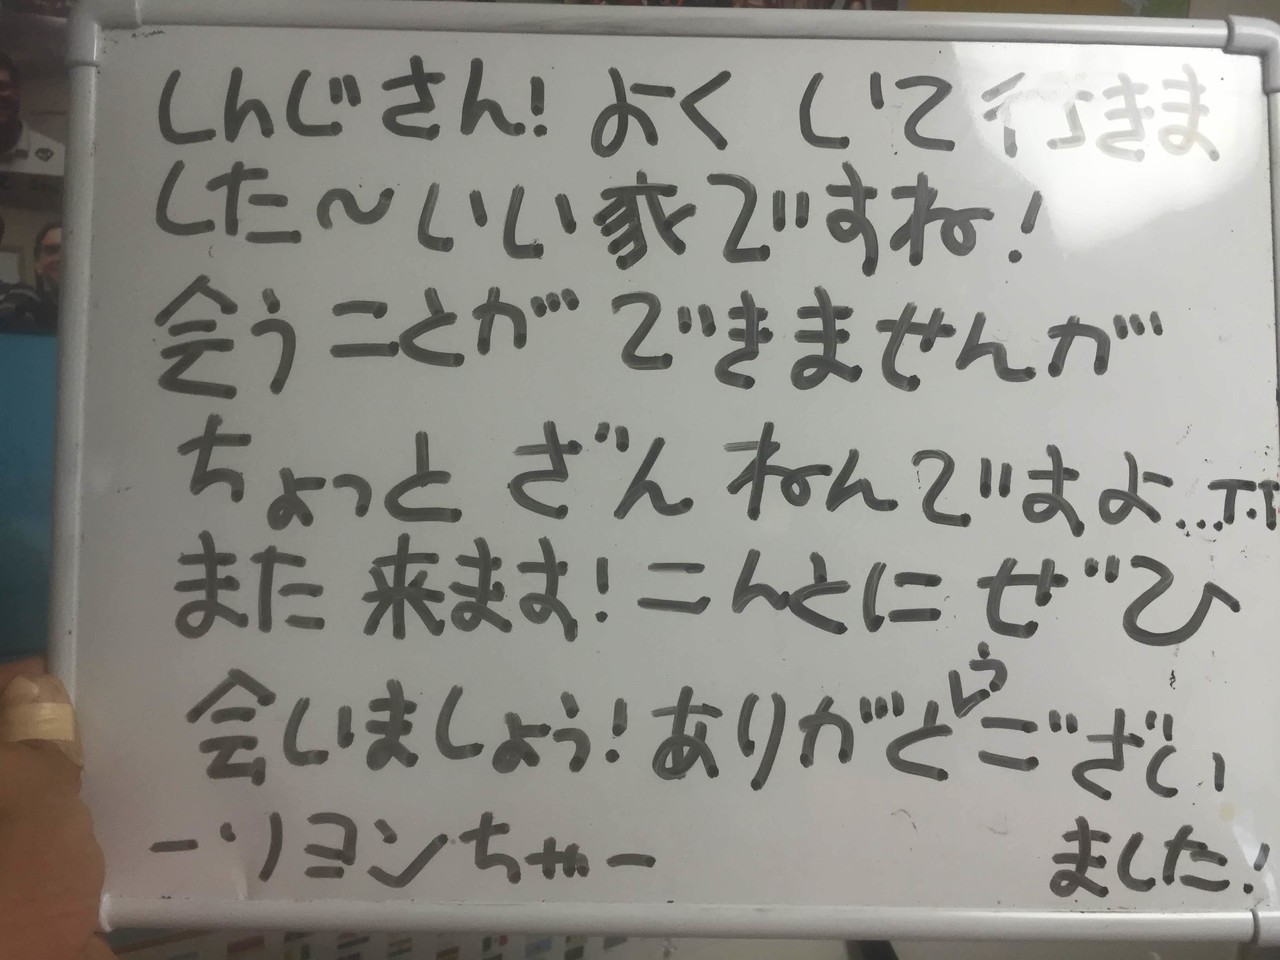 しんじさん! よく していて行きま
した〜いい家ですね!
会うことが できませんが
ちょっと ざんねんですよ...T.T
また 来ます! こんとに ぜひ
会いましょう! ありがとうござい
ました!
-ソヨンちゃ-